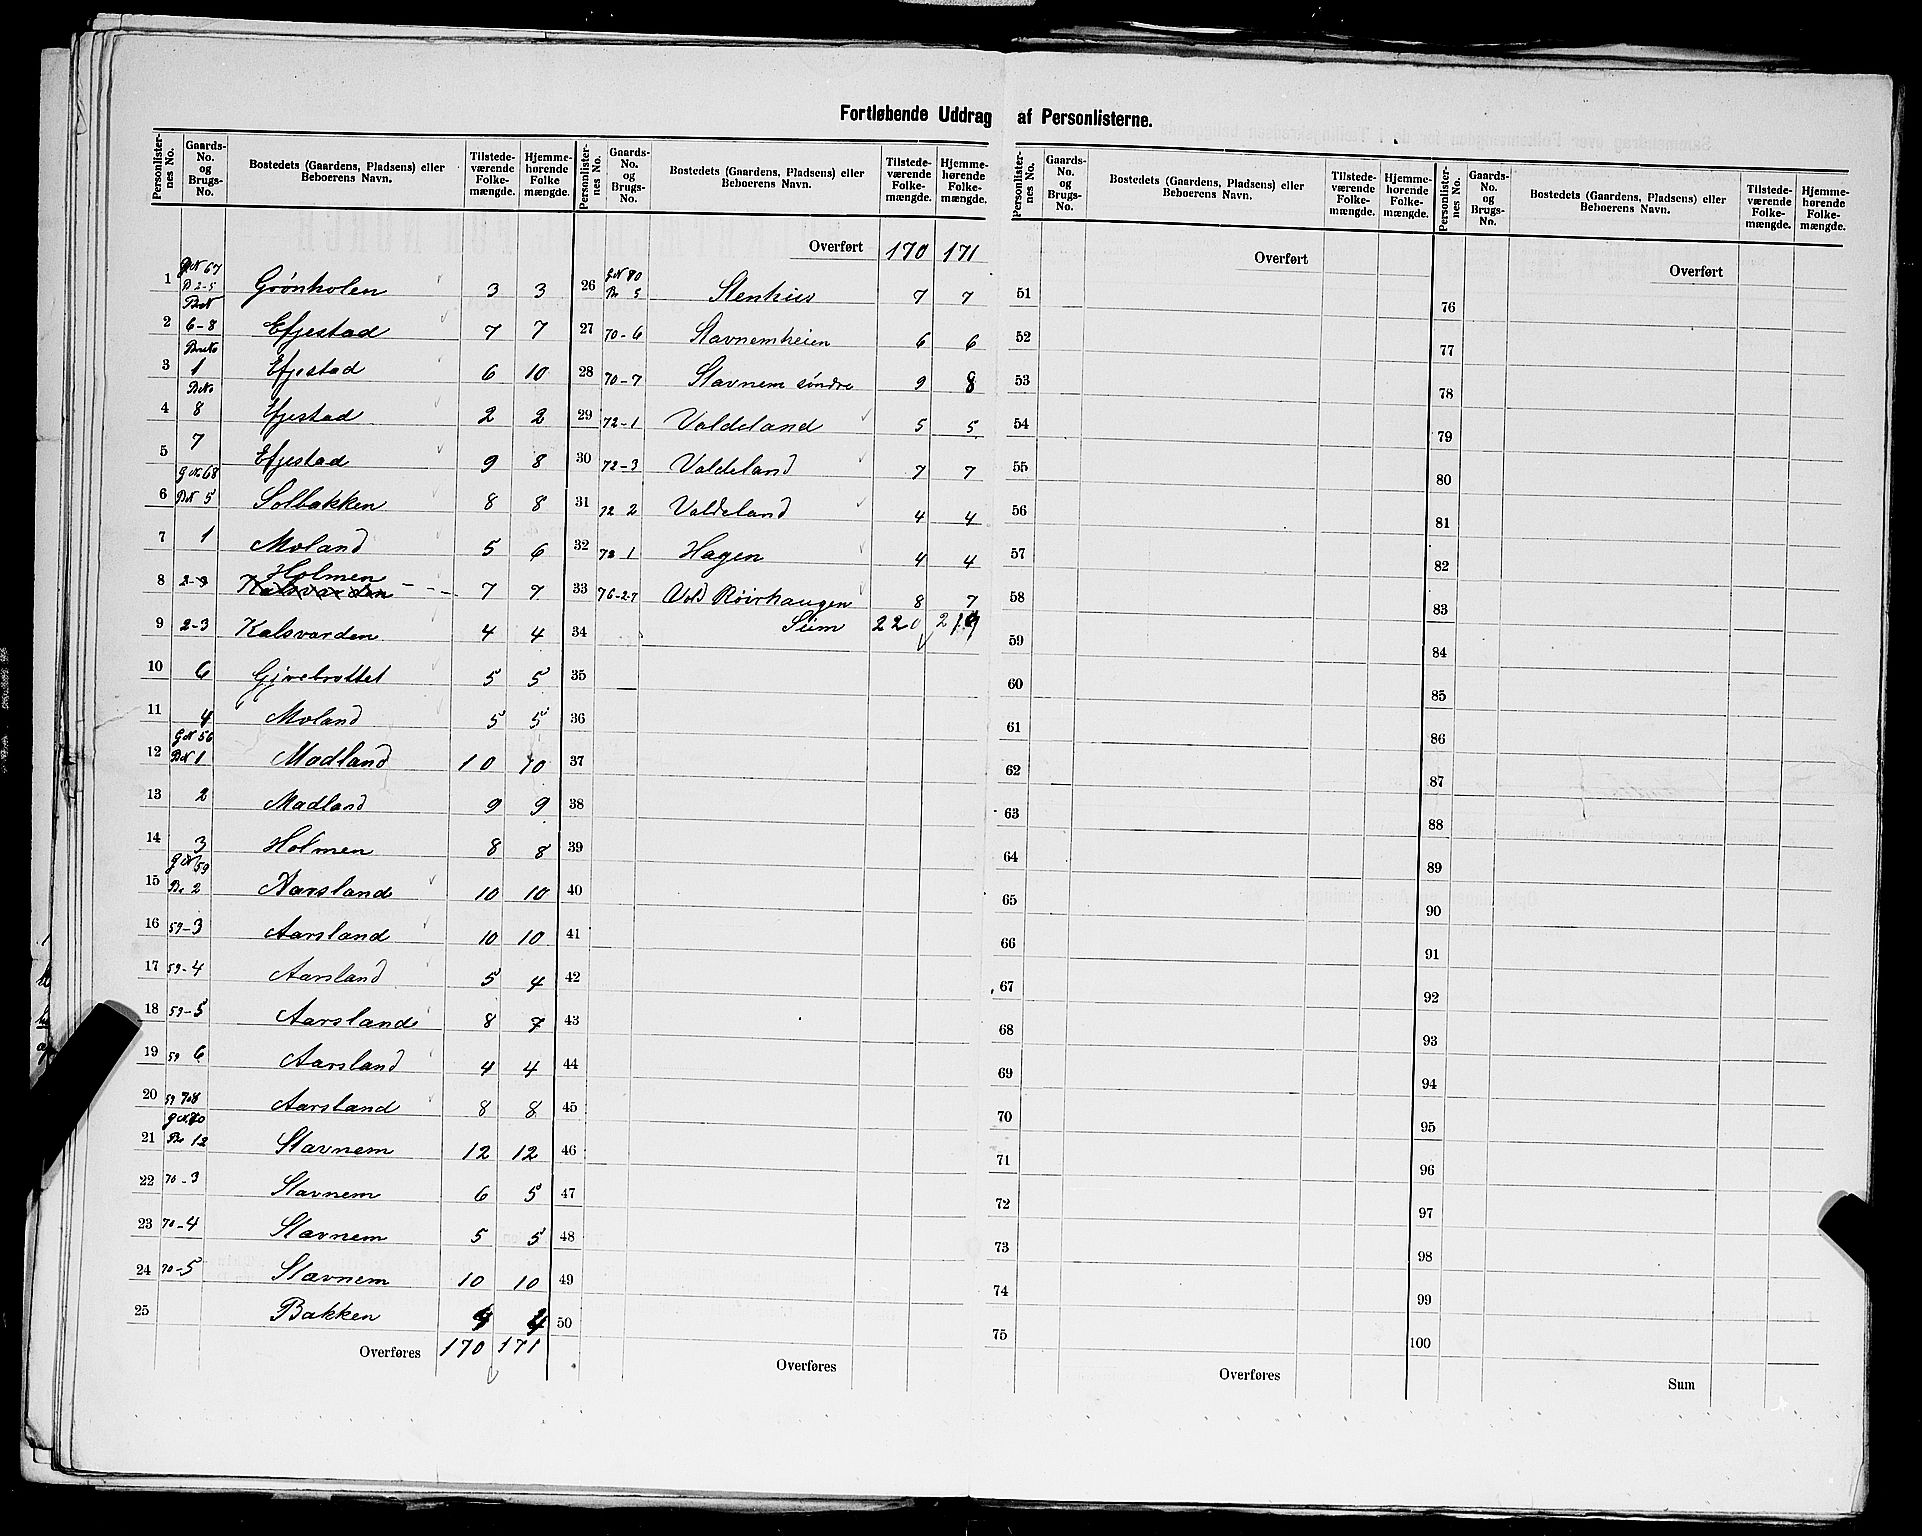 Fortløbende Uddrag af Personlisterne.
Personlisternes No. | Gaards-No. og Brugs-No. | Bostedets (Gaardens, Pladsens) eller Beboerens Navn. | Tilstedeværende Folkemængde. | Hjemmehørende Folkemængde.
1 G№ 67 B 2-5 Grønholen 3 3
2 Br№ 6-8 Efjestad 7 7
3 Br№ 1 Efjestad 6 10
4 Br№ 8 Efjestad 2 2
5 7 Efjestad 9 8
6 G№ 68 B№ 5 Solbakken 8 8
7 1 Moland 5 6
8 2-3 Holmen Kalsvarden 7 7
9 2-3 Kalsvarden 4 4
10 6 5 5
11 4 Moland 5 5
12 G№ 56 B№ 1 Madland 10 10
13 2 Madland 9 9
14 3 Holmen 8 8
15 G№ 59 Br 2 Aarsland 10 10
16 59-3 Aarsland 10 10
17 59-4 Aarsland 5 4
18 59-5 Aarsland 8 7
19 59 6 Aarsland 4 4
20 59 7o8 Aarsland 8 8
21 G№ 70 Br 12 Stavnem 12 12
22 70-3 Stavnem 6 5
23 70-4 Stavnem 5 5
24 70-5 Stavnem 10 10
25 Bakken 4 4
Overføres 170 171
Personlisternes No. | Gaards-No. og Brugs-No. | Bostedets (Gaardens, Pladsens) eller Beboerens Navn. | Tilstedeværende Folkemængde. | Hjemmehørende Folkemængde.
Overført 170 171
26 G№ 70 Br 5 Stenhus 7 7
27 70-6 Stavnemheien 6 6
28 70-7 Stavnem søndre 9 8
29 72-1 Valdeland 5 5
30 72-3 Valdeland 7 7
31 72 2 Valdeland 4 4
32 72 1 Hagen 4 4
33 76-2-7 Røirhaugen 8 7
34 Sum 220 219
35
36
37
38
39
40
41
42
43
44
45
46
47
48
49
50
Overføres
Personlisternes No. | Gaards-No. og Brugs-No. | Bostedets (Gaardens, Pladsens) eller Beboerens Navn. | Tilstedeværende Folkemængde. | Hjemmehørende Folkemængde.
Overført
51
52
53
54
55
56
57
58
59
60
61
62
63
64
65
66
67
68
69
70
71
72
73
74
75
Overføres
Personlisternes No. | Gaards-No. og Brugs-No. | Bostedets (Gaardens, Pladsens) eller Beboerens Navn. | Tilstedeværende Folkemængde. | Hjemmehørende Folkemængde.
Overført
76
77
78
79
80
81
82
83
84
85
86
87
88
89
90
91
92
93
94
95
96
97
98
99
100
Sum